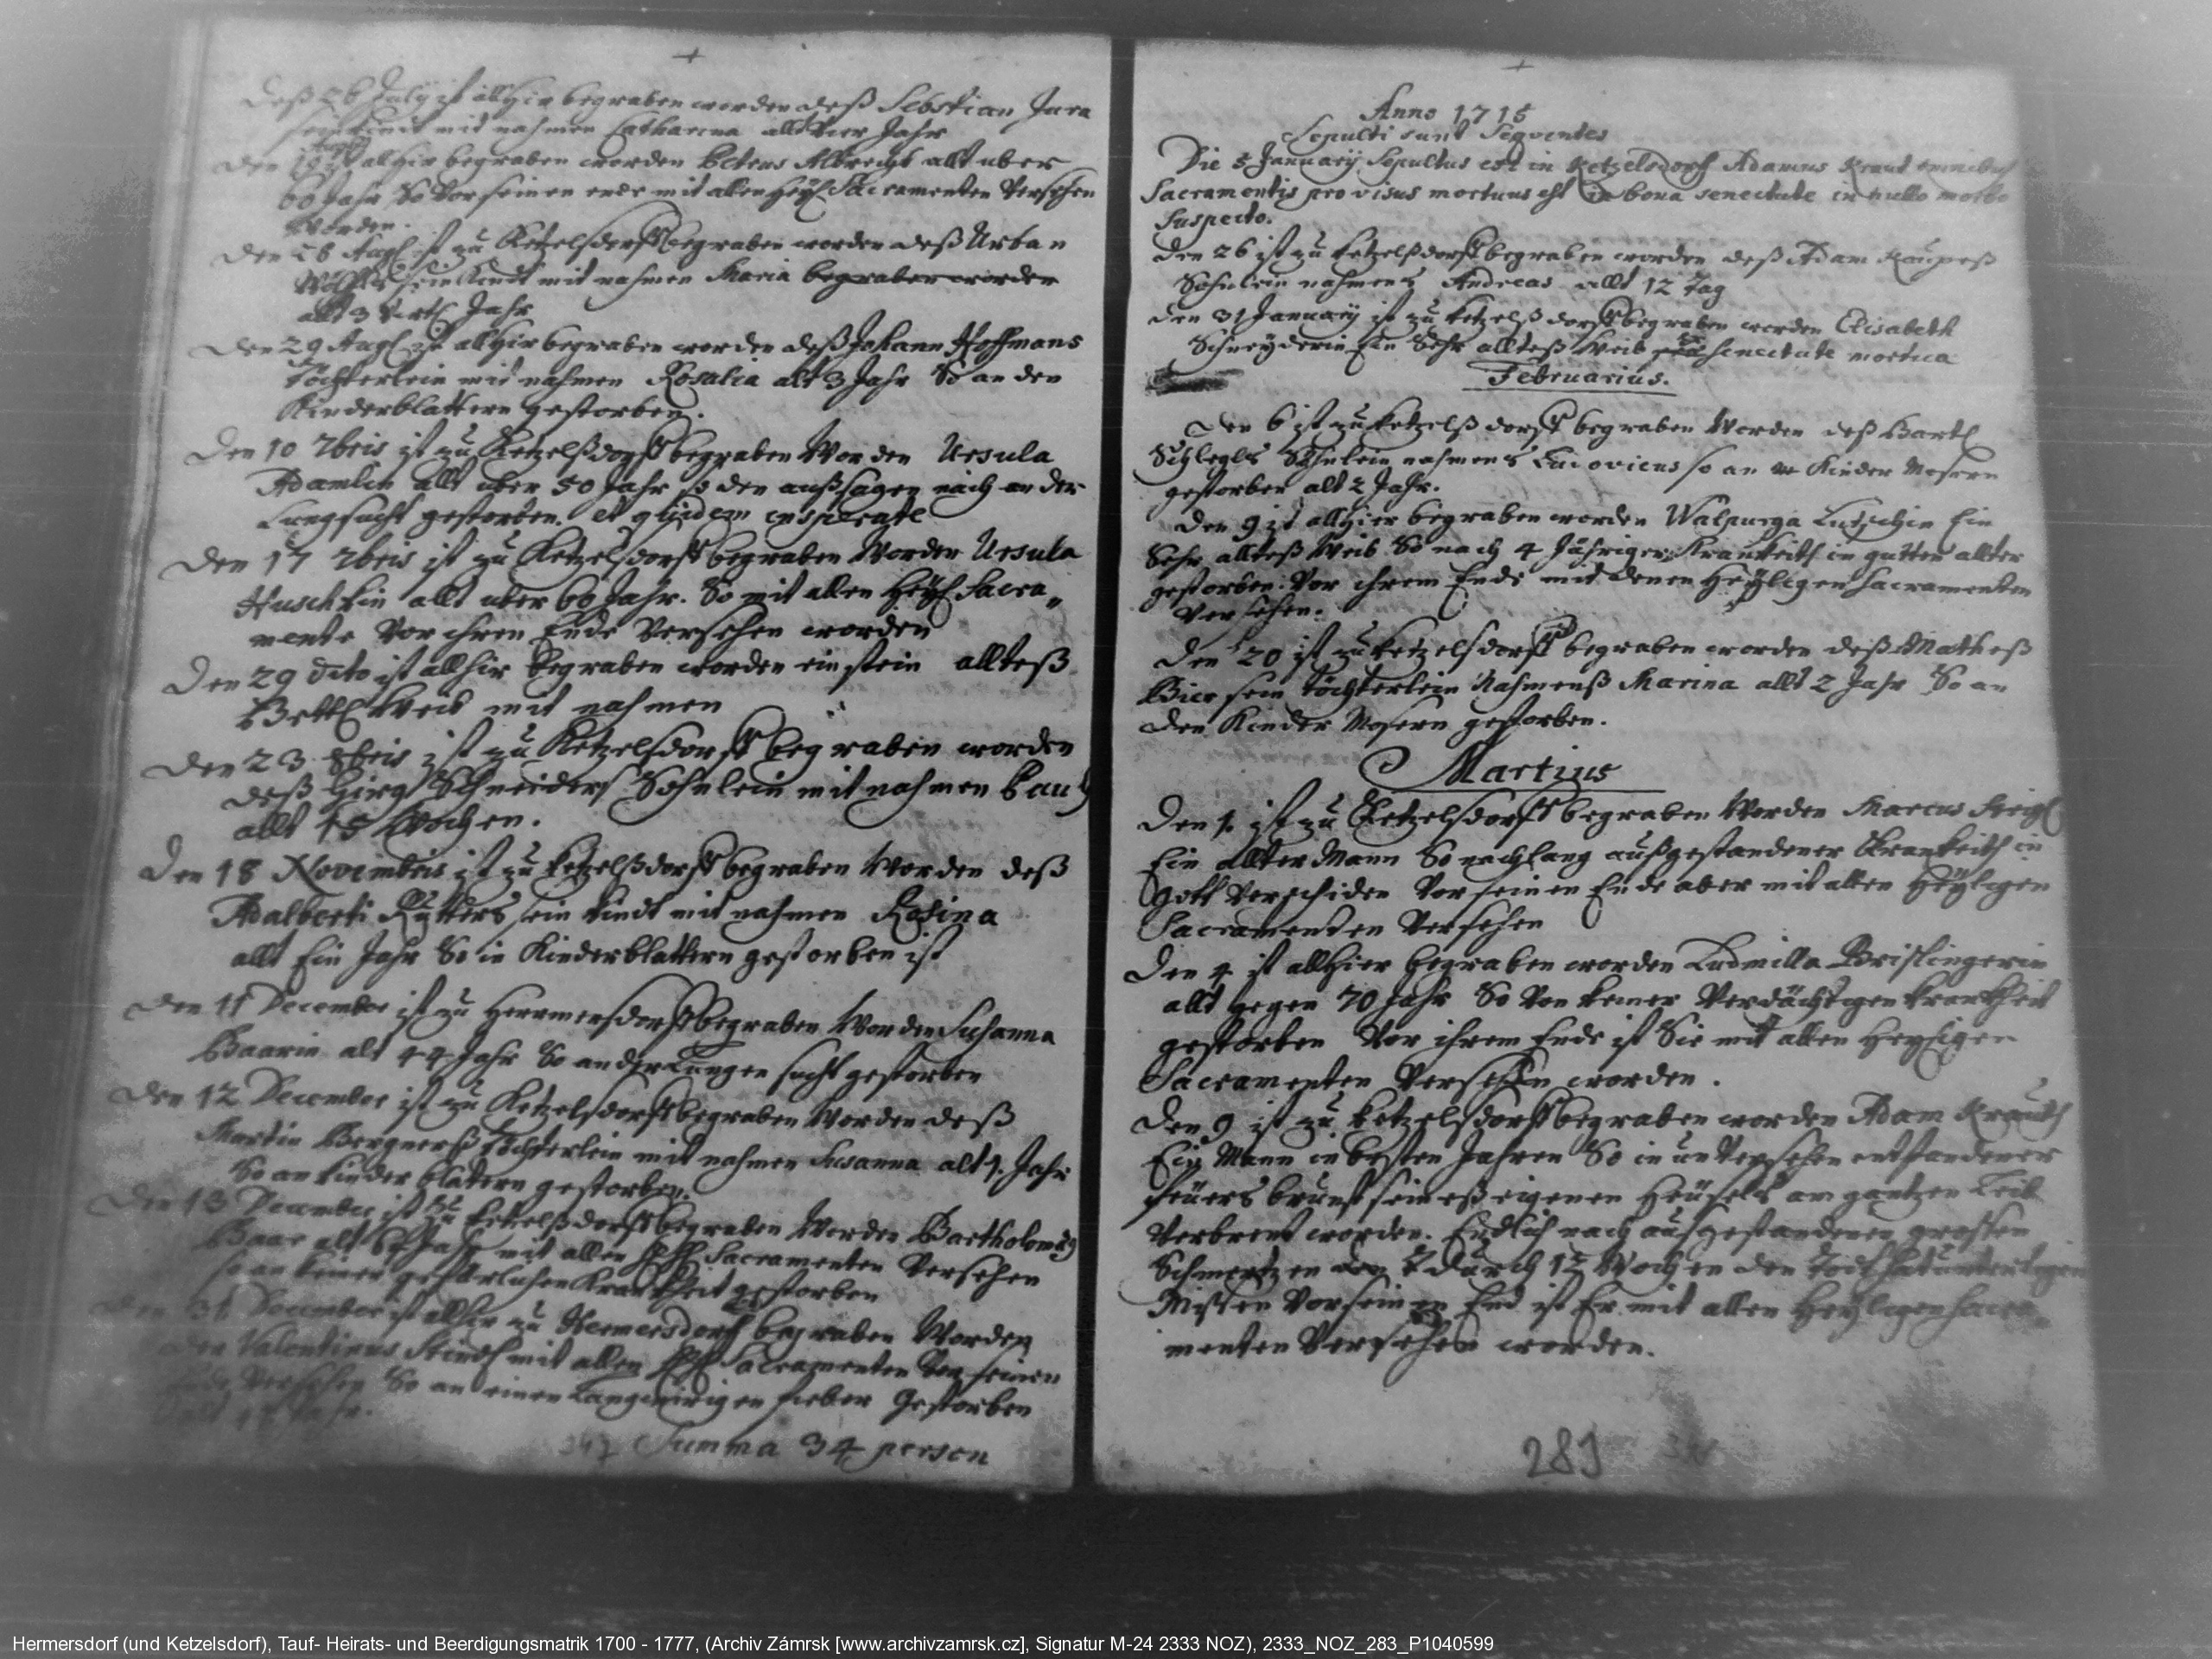 Deß 26 July ist allhir begraben worden deß Sebstian Jura
sein Kindt mit nahmen Catharina allt vier Jahr
Augusti
Den 19 ist alhir begraben worden Petrus Albrecht allt uber
60 Jahr So Vor seinen ende mit allen Heyl Sacramenten Versehen
Worden.
Den 26 Augl ist zu Ketzelsdorff begraben worden deß Urban
sein Kindt mit nahmen Maria begraben worden
allt 3 Virtl Jahr
Den 29 Augl ist allhir begraben worden deß Johann Hoffmans
Töchterlein mit nahmen Rosalia alt 3 Jahr So an den
Kinderblattern gestorben.
Den 10 7bris ist zu Ketzelßdorff begraben Worden Ursula
Adamlin allt uber 50 Jahr so den außsagen nach an der
Lungsucht gestorben. et quidem insperate
Den 17 7bris ist zu Ketzelsdorff begraben Worden Ursula
Huschkin allt uber 60 Jahr. So mit allen Heyl Sacra„
mente Vor ihren Ende Versehen worden
Den 29 dito ist allhir begraben worden ein stein allteß
Bettl Weib mit nahmen
Den 23 8bris ist zu Ketzelsdorff begraben worden
deß Girg Schneiders Söhnlein mit nahmen Paul
allt 15 Wochen.
Den 18 Novembris ist zu Ketzelßdorff begraben Worden deß
Adalberti sein Kindt mit nahmen Rosina
allt Ein Jahr So in Kinderblattern gestorben ist
Den 11 December ist zu Herrmersdorff begraben Worden Susanna
Baarin alt 44 Jahr So an der Lungen sucht gestorben
Den 12 December ist zu Ketzelsdorff begraben Worden deß
Martin Bergnerß Töchterlein mit nahmen Susanna alt 1. Jahr
So an kinder blatern gestorben.
Den 13 December ist zu Ketzelßdorff begraben Worden Bartholomæg
Baar alt Jahr mit allen Sacramenten Versehen
so an keiner gefährlichen Kranckheit gestorben
Den 31 December ist allhir zu Hermersdorff begraben Worden
Valentinus mit allen Sacramenten Vor seinen
Ende Versehen So an einen Langwirigen fieber Gestorben
Jahr.
347 Summa 34 person
Anno 1715
Sepulti sunt Seqventes
Die 5 January Sepultus est in Ketzelsdorff Adamus Kraut omnibus
Sacramentis provisus mortuus est in bona senectute in nullo morbo
suspecto.
Den 26 ist zu Ketzelßdorff begraben worden deß Adam
Söhnlein nahmens Andreas allt 12 Tag
Den 31 January ist zu Ketzelßdorff begraben worden Elisabeth
Schneyderin Ein Sehr allteß Weib ex senectute mortua
Februarius.
Den 6 ist zu Ketzelßdorff begraben Worden deß Bartl
Schlegls Söhnlein nahmens Ludovicus so an Kinder Masern
gestorben alt 2 Jahr.
Den 9 ist allhier begraben worden Walpurga Ein
Sehr allteß Weib So nach 4 Jähriger Kranckeith in gutten allter
gestorben. Vor ihrem Ende mit denen Heyligen Sacramenten
Versehen.
Den 20 ist zu Ketzelsdorff begraben worden deß Matheß
Bier sein Töchterlein Nahmenß Marina allt 2 Jahr So an
den Kinder Masern gestorben.
Martius
Den 1. ist zu Ketzelsdorff begraben Worden Marcus
Ein allter Mann So nach lang außgestandener Kranckeith in
Gott Verscheiden Vor seinen Ende aber mit allen Heyligen
Sacramenten Versehen
Den 4 ist allhier begraben worden Ludmilla Brislingerin
allt gegen 70 Jahr So Von keiner Verdächtigen Kranckheit
gestorben Vor ihrem Ende ist Sie mit allen Heyligen
Sacramenten Versehen worden.
Den 9 ist zu Ketzelsdorff begraben worden Adam Krauth
Ein Mann in besten Jahren So in unversehen entstandener
feuers brunst seineß eigenen Heüsels am gantzen Leib
Verbrent worden. Endlich nach außgestandenen grossen
Schmertzen durch 12 Wochen den Todt hat
Missen Vor seinen End ist Er mit allen Heyligen Sacra
menten Versehen worden.
289
Hermersdorf (und Ketzelsdorf), Tauf- Heirats- und Beerdigungsmatrik 1700 - 1777, (Archiv Zámrsk [www.archivzamrsk.cz], Signatur M-24 2333 NOZ), 2333_NOZ_283_P1040599